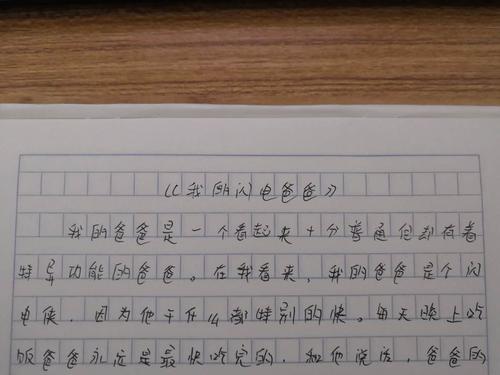 《我的闪电爸爸》
我的爸爸是一个看起来十分普通但却有着
特异功能的爸爸。在我看来,我的爸爸是个闪
电侠,因为他干什么都特别的快。每天晚上吃
饭爸爸永远是最快吃完的,和他说话,爸爸的